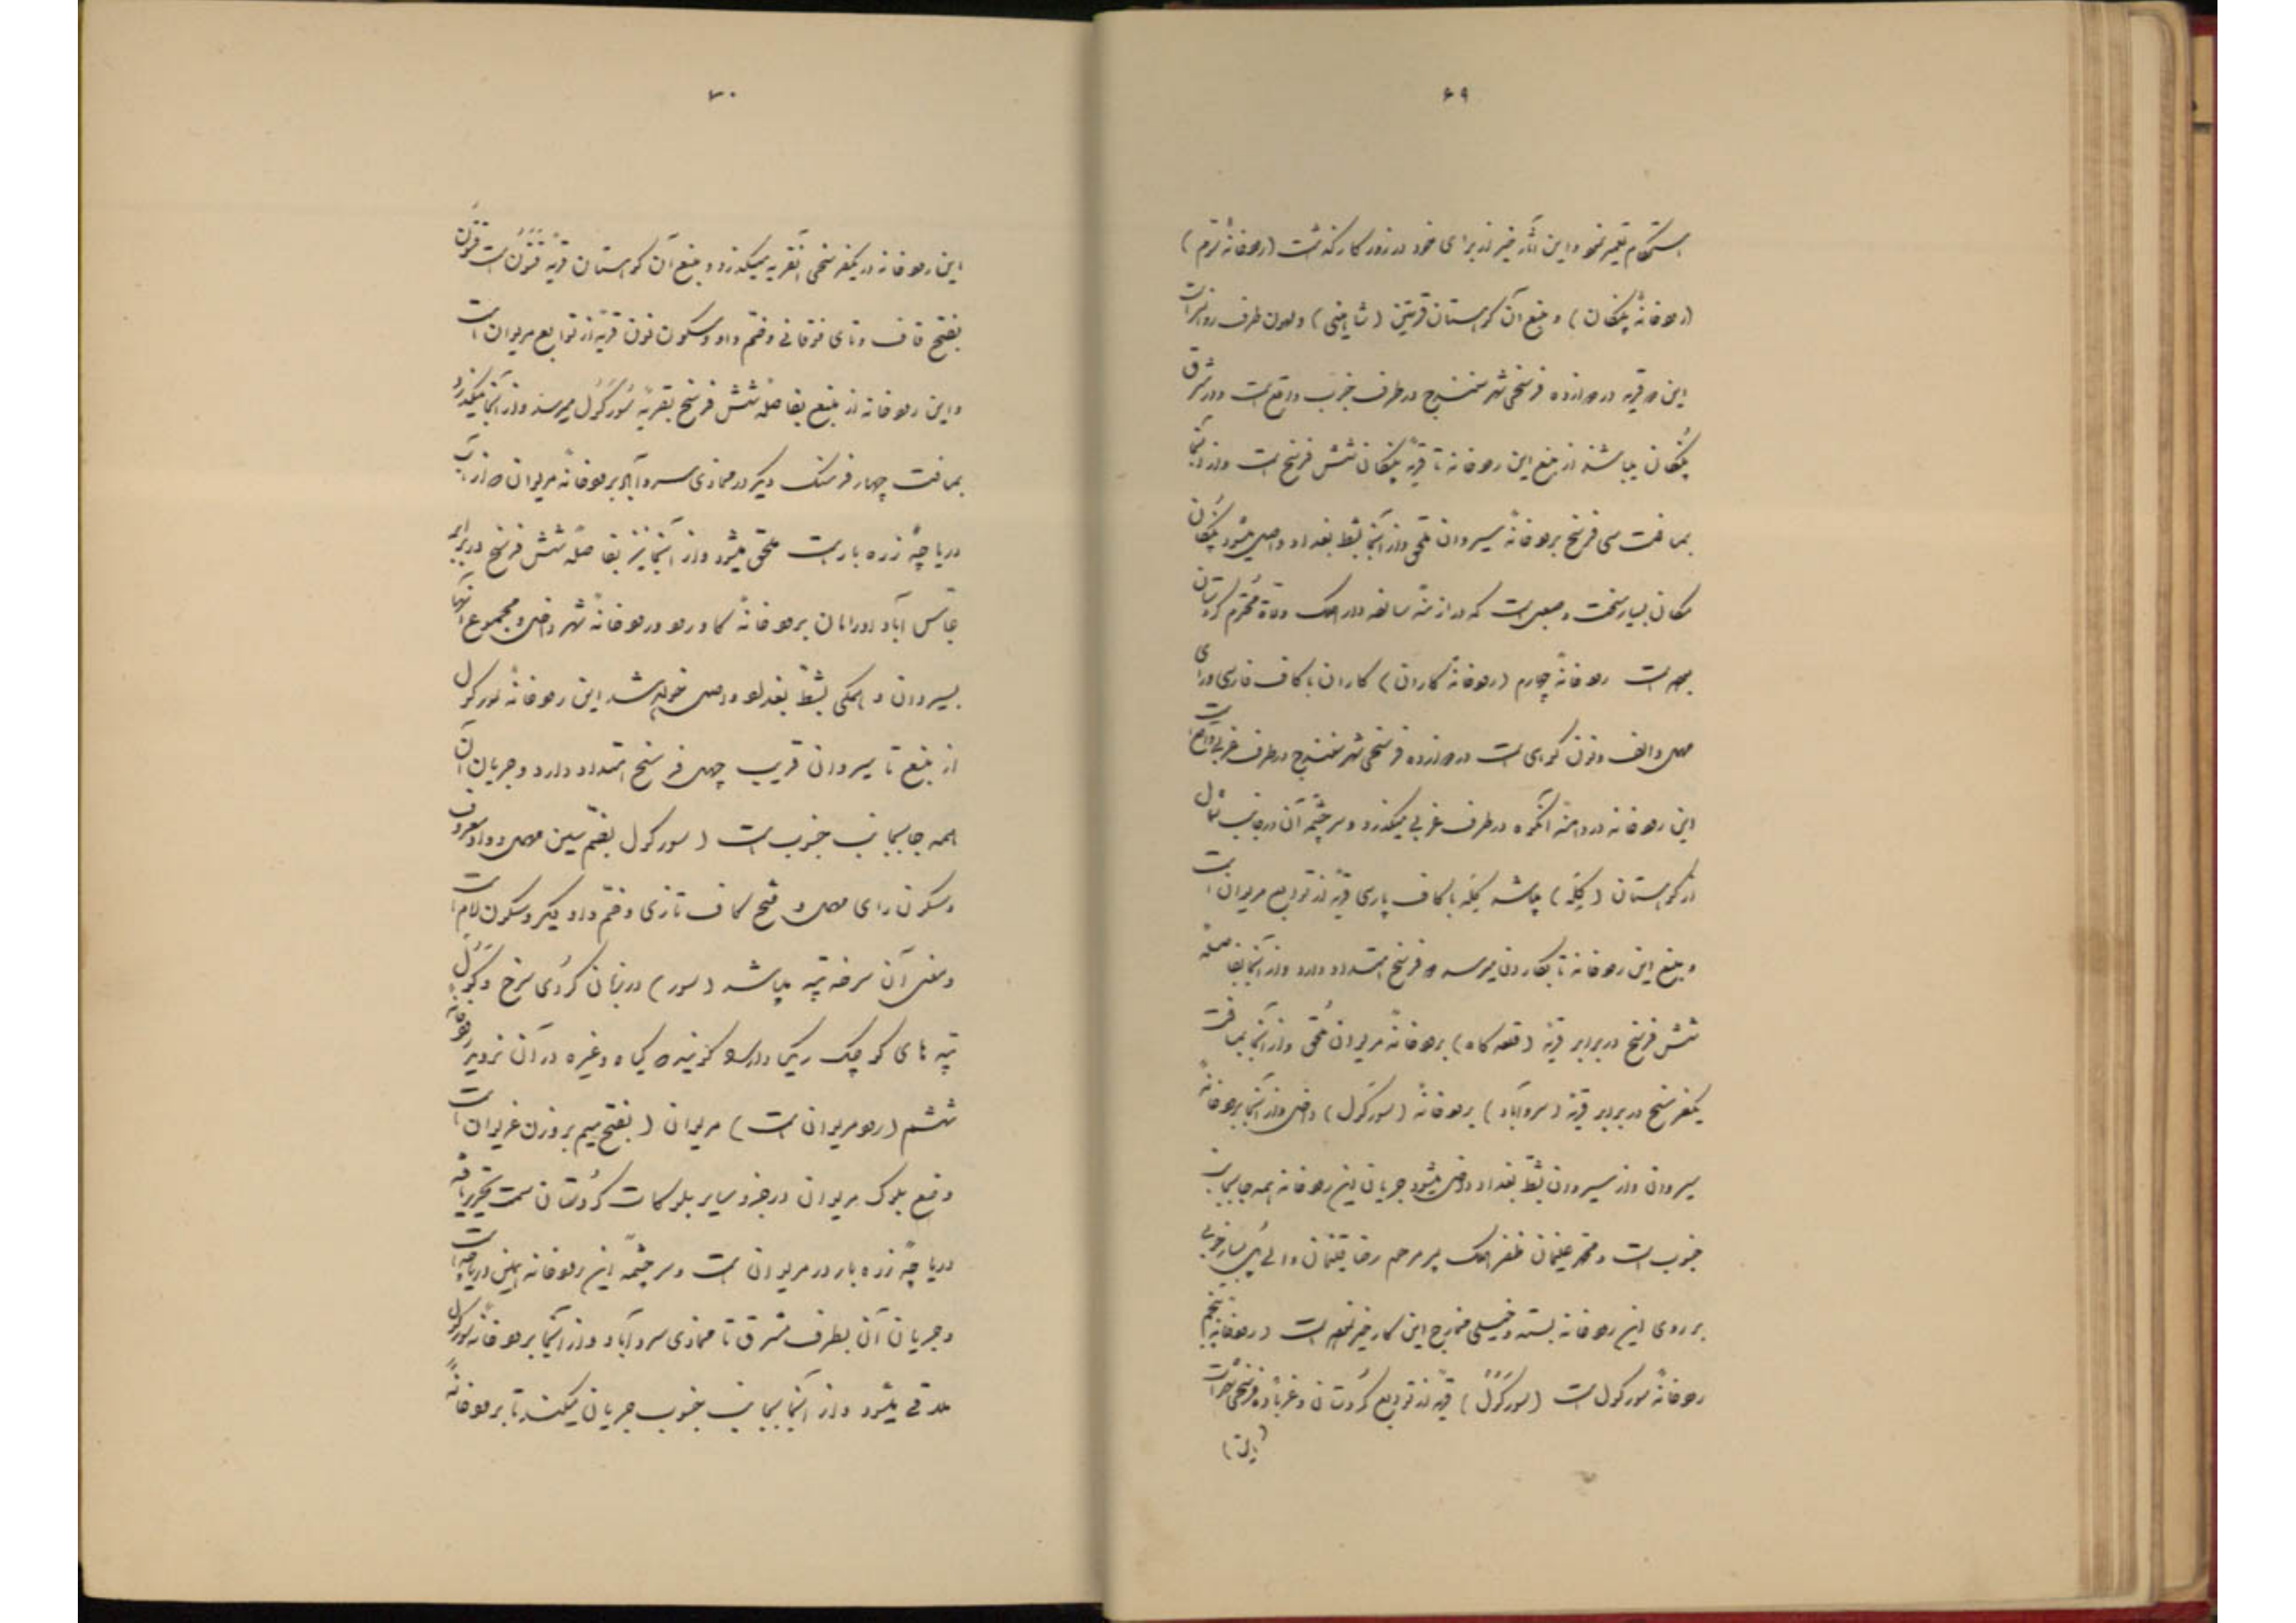 ۶۹
استحکام تعمیر نمود و این آثار خیر از برای خود در روزگار گذاشت (رودخانهٔ سوم)
(رودخانهٔ پلنگان) و منبع آن کوهستان قریتین (شاهینی) و طرف رود
این دو قریه در دوازده فرسخی شهر سنندج در طرف جنوب واقع است و در شرق
پلنگان میباشند از منبع این رودخانه تا قریه پلنگان شش فرسخ است و از آنجا
بمسافت سی فرسخ برودخانهٔ سیروان ملحق و از آنجا بشط بغداد واصل میشود پلنگان
مکان بسیار سخت و صعبی است که در ازمنهٔ سالفه دارالملک ولاة محترم کردستان
بوده است رودخانهٔ چهارم (رودخانهٔ گاران) گاران با کاف فارسی و رای
مهمل و الف و نون کوهی است در دوازده فرسخی شهر سنندج در طرف غربی واقع است
این رودخانه در دامنهٔ آنکوه در طرف غربی میگذرد و سرچشمه آن در جانب شمال
از کوهستان (گیله) میباشد گیله با کاف پارسی قریهٔ از توابع مریوان است
و منبع این رودخانه تا بگاران میرسد دو فرسخ امتداد دارد و از آنجا بفاصلهٔ
شش فرسخ در برابر قریهٔ (قلعه گاه) برودخانهٔ مریوان ملحق و از آنجا بمسافت
یکفرسخ در برابر قریهٔ (سروآباد) برودخانهٔ (سورکول) داخل و از آنجا برودخانهٔ
سیروان و از سیروان بشط بغداد داخل میشود جریان این رودخانه همه جا بجانب
جنوب است و محمد علیخان ظفرالملک پسر مرحوم رضا قلیخان والی پل بسیار خوبی
بر روی این رودخانه بسته و خیلی مخارج این کار خیر نموده است (رودخانهٔ پنجم)
رودخانهٔ سورکول است (سورکول) قریهٔ از توابع کردستان و غرباً ده فرسخی شهر است
(این)
۷۰
این رودخانه در یکفرسخی آنقریه میگذرد و منبع آن کوهستان قریهٔ قتون است قتون
بفتح قاف و تای فوقانی و ضم واو و سکون نون قریهٔ از توابع مریوان است
و این رودخانه از منبع بفاصلهٔ شش فرسخ بقریهٔ سورکول میرسد و از آنجا میگذرد
بمسافت چهار فرسنگ دیگر در محاذی سروآباد برودخانهٔ مریوان که از آب
دریاچهٔ زره بار است ملحق میشود و از آنجا نیز بفاصلهٔ شش فرسخ در برابر
عباس آباد اورامان برودخانهٔ گاورود و رودخانهٔ شهر داخل و مجموع آنها
بسیروان و همگی بشط بغداد واصل خواهند شد این رودخانهٔ سورکول
از منبع تا سیروان قریب چهل فرسخ امتداد دارد و جریان آن
همه جا بجانب جنوب است (سورکول بضم سین مهمل و واو معروف
و سکون رای مهمل و فتح کاف تازی و ضم واو دیگر و سکون لام است
و معنی آن سرخه تپه میباشد (سور) در زبان کردی سرخ و کول
تپه های کوچک ریگی دارد گویند که گیاه و غیره در آن نروید رودخانهٔ
ششم (رود مریوان است) مریوان (بفتح میم بر وزن غریوان است
وضع بلوک مریوان در جزو سایر بلوکات کردستان سمت تحریر یافته
دریاچهٔ زره بار در مریوان است و سرچشمهٔ این رودخانه همین دریاچه است
و جریان آن بطرف مشرق تا محاذی سروآباد و از آنجا برودخانهٔ سورکول
ملاقی میشود و از آنجا بجانب جنوب جریان میکند تا برودخانهٔ